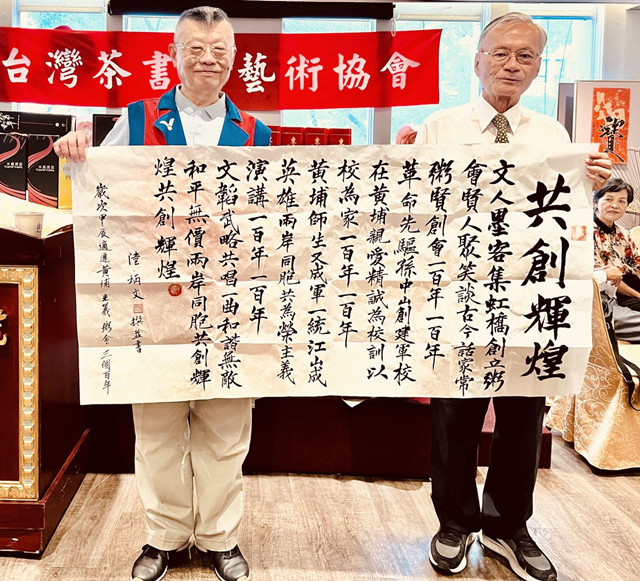 台灣茶書藝術協會
共創輝煌
文人墨客集虹橋創立粥
會賢人聚笑談古今話家常
粥賢創會一百年一百年
革命先驅孫中山創建軍校
在黃埔親愛精誠為校訓以
校為家一百年一百年
黃埔師生又成軍一統江山成
英雄兩岸同胞共為榮主義
演講一百年一百年
文韜武略共唱一曲和諧無敵
和平無價兩岸同胞共創輝
煌共創輝煌
陸炳文撰並書
歲次甲辰適逢黃埔主義粥會三個百年